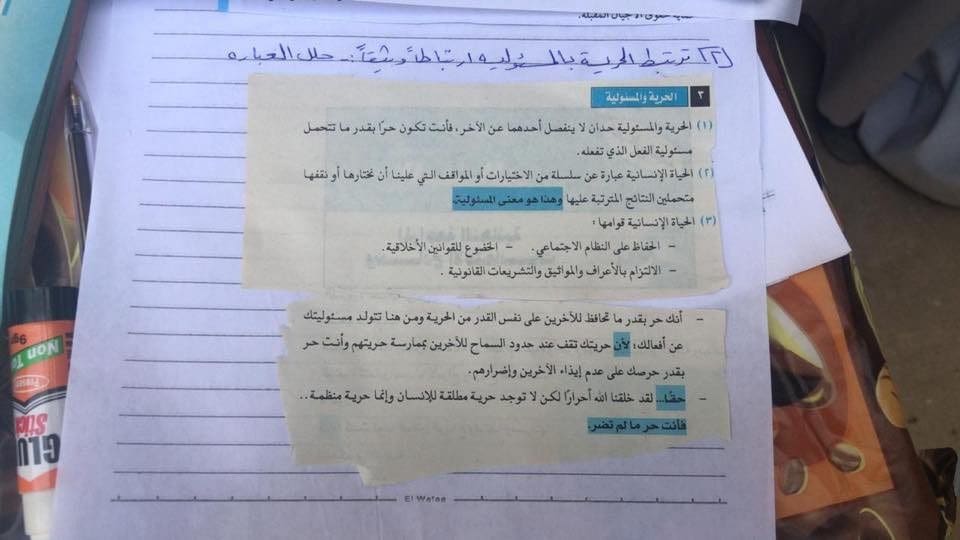 حقوق الأجيال المقبلة.
[٢] ترتبط الحرية بالمسئولية ارتباطاً وثيقاً :- حلل العبارة
٣ الحرية والمسئولية
(١) الحرية والمسئولية حدان لا ينفصل أحدهما عن الآخر، فأنت تكون حرًا بقدر ما تتحمل
مسئولية الفعل الذي تفعله.
(٢) الحياة الإنسانية عبارة عن سلسلة من الاختيارات أو المواقف التي علينا أن نختارها أو نقفها
متحملين النتائج المترتبة عليها وهذا هو معنى المسئولية.
(٣) الحياة الإنسانية قوامها :
– الحفاظ على النظام الاجتماعي. – الخضوع للقوانين الأخلاقية.
– الالتزام بالأعراف والمواثيق والتشريعات القانونية .
– أنك حر بقدر ما تحافظ للآخرين على نفس القدر من الحرية ومن هنا تتولد مسئوليتك
عن أفعالك؛ لأن حريتك تقف عند حدود السماح للآخرين بممارسة حريتهم وأنت حر
بقدر حرصك على عدم إيذاء الآخرين وإضرارهم.
– حقًا... لقد خلقنا الله أحرارًا لكن لا توجد حرية مطلقة للإنسان وإنما حرية منظمة..
فأنت حر ما لم تضر.
El Wafaa
9g
Non To
GLU
Stick